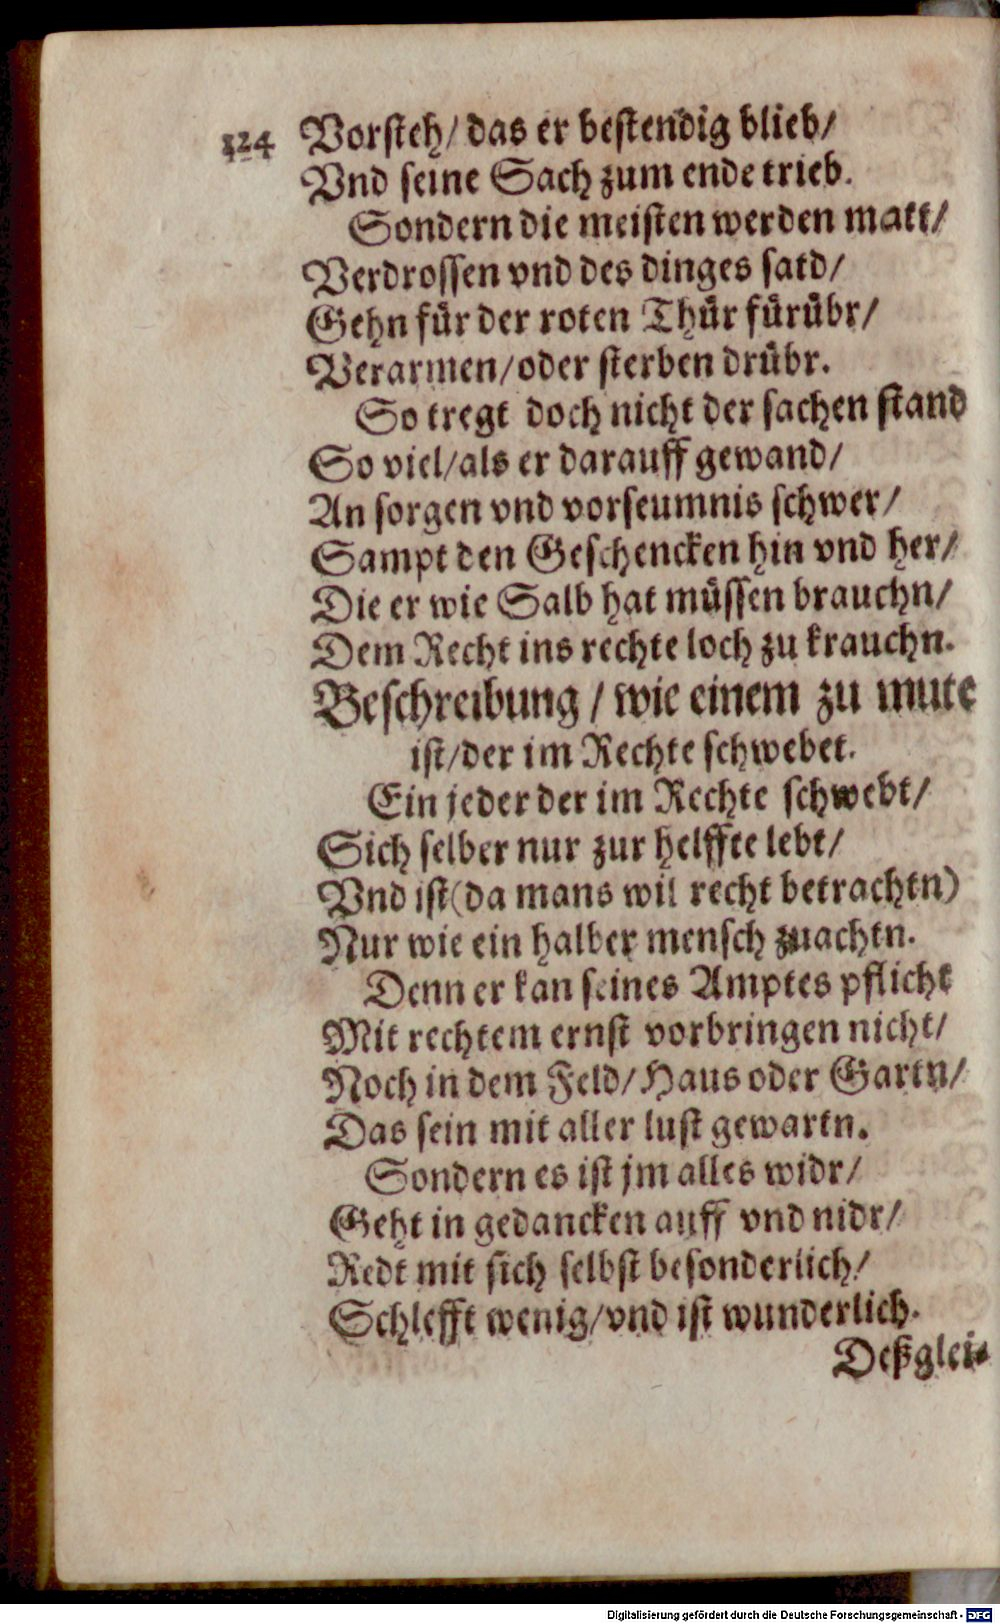 324 Vorsteh/ das er bestendig blieb/
Vnd seine Sach zum ende trieb.
Sondern die meisten werden matt/
Verdrossen vnd des dinges satd/
Gehn für der roten Thür fürübr/
Verarmen/ oder sterben drübr.
So tregt doch nicht der sachen stand
So viel/ als er darauff gewand/
An sorgen vnd vorseumnis schwer/
Sampt den Geschencken hin vnd her/
Die er wie Salb hat müssen brauchn/
Dem Recht ins rechte loch zu krauchn.
Beschreibung / wie einem zu mute
ist/ der im Rechte schwebet.
Ein jeder der im Rechte schwebt/
Sich selber nur zur helffte lebt/
Vnd ist (da mans wil recht betrachtn)
Nur wie ein halber mensch zuachtn.
Denn er kan seines Amptes pflicht
Mit rechtem ernst vorbringen nicht/
Noch in dem Feld/ Haus oder Gartn/
Das sein mit aller lust gewartn.
Sondern es ist jm alles widr/
Geht in gedancken auff vnd nidr/
Redt mit sich selbst besonderlich/
Schlefft wenig/ vnd ist wunderlich.
Deßglei-
Digitalisierung gefördert durch die Deutsche Forschungsgemeinschaft - DFG